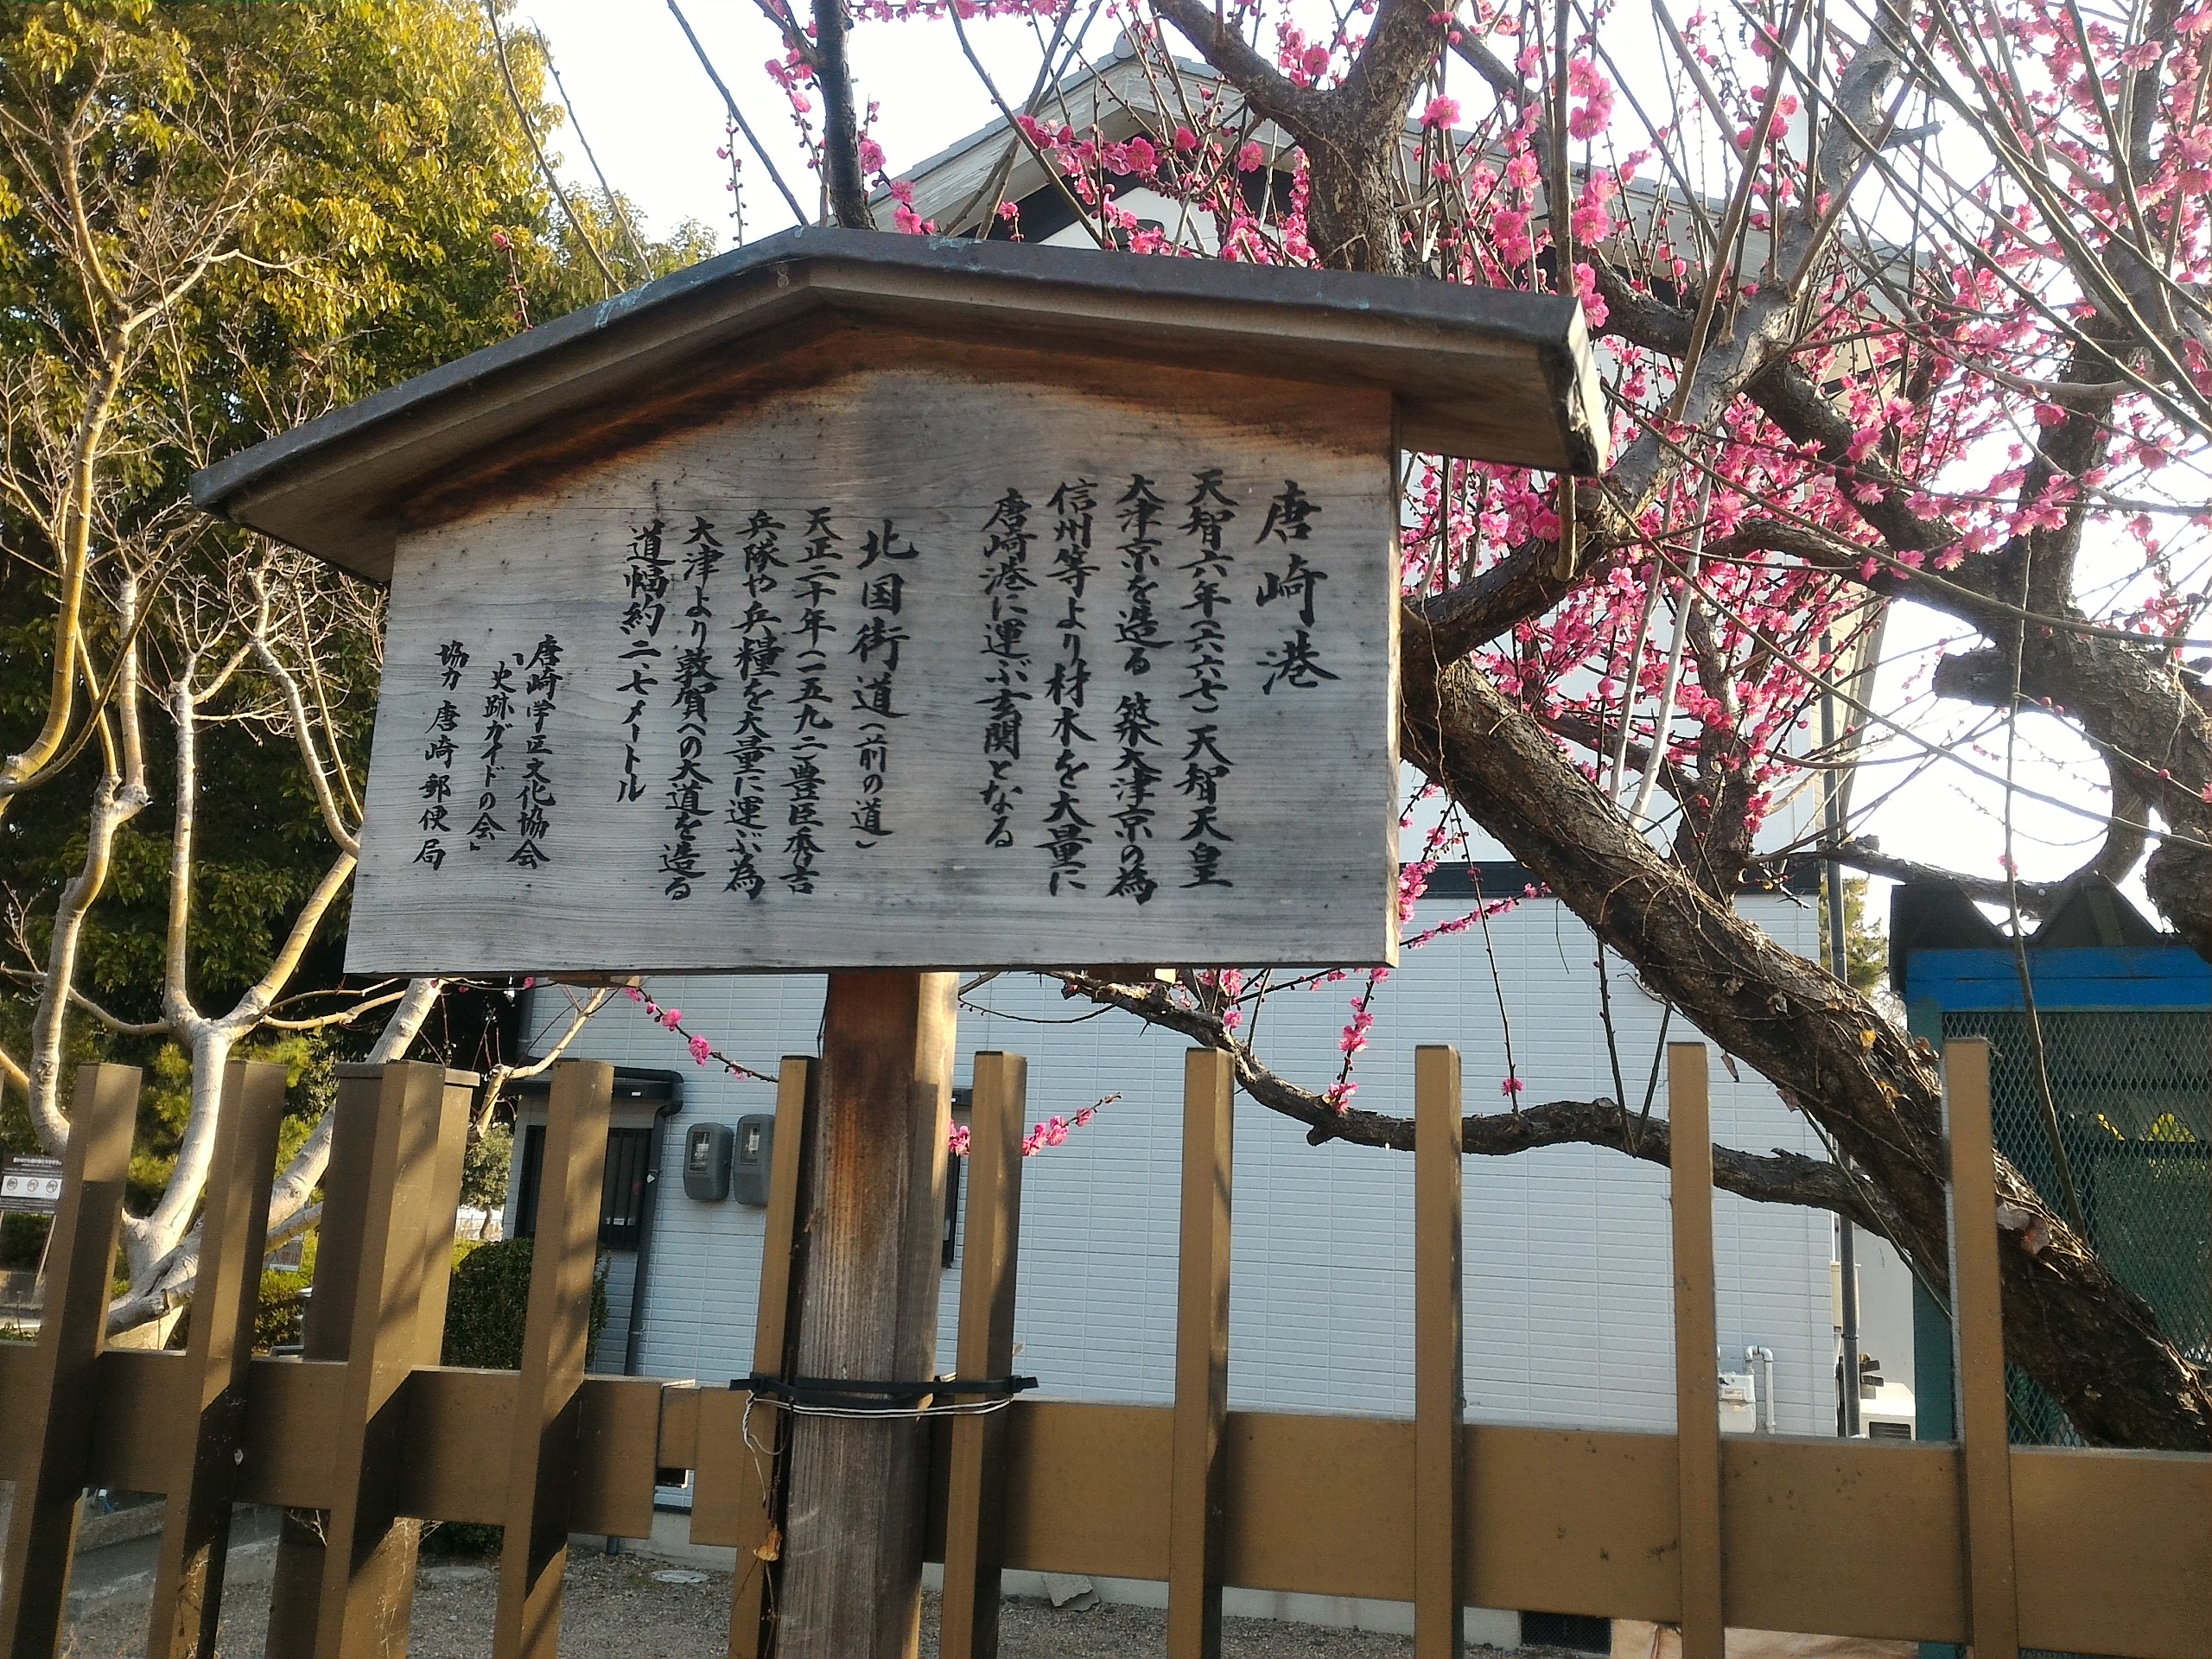 唐崎港
天智六年(六六七)天智天皇
大津京を造る 築大津京の為
信州等より材木を大量に
唐崎港に運ぶ玄関となる
北国街道(前の道)
天正二十年(一五九二豊臣秀吉
兵隊や兵糧を大量に運ぶ為
大津より敦賀への大道を造る
道幅約二、七メートル
唐崎学区文化協会
「史跡ガイドの会」
協力 唐崎郵便局